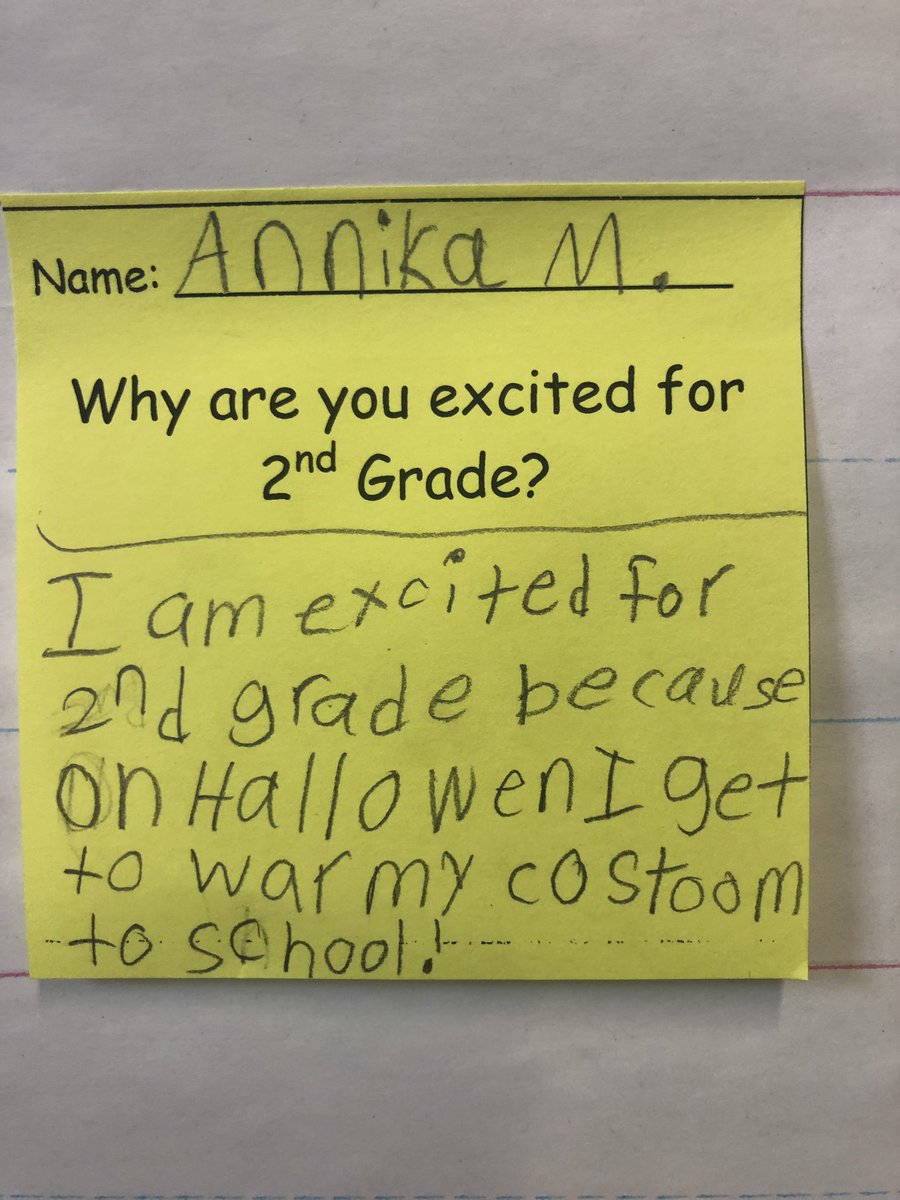 Name: Annika M.
Why are you excited for
2nd Grade?
I am excited for
2nd grade because
on Hallowen I get
to war my costoom
to school!